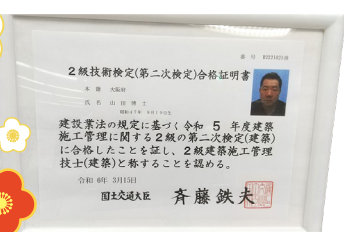 ２級技術検定(第二次検定)合格証明書
本籍 大阪府
建設業法の規定に基づく令和 ５ 年度建築
施工管理に関する２級の第二次検定(建築)
に合格したことを証し、２級建築施工管理
技士(建築)と称することを認める。
令和 6年 3月15日
国土交通大臣 斉藤鉄夫